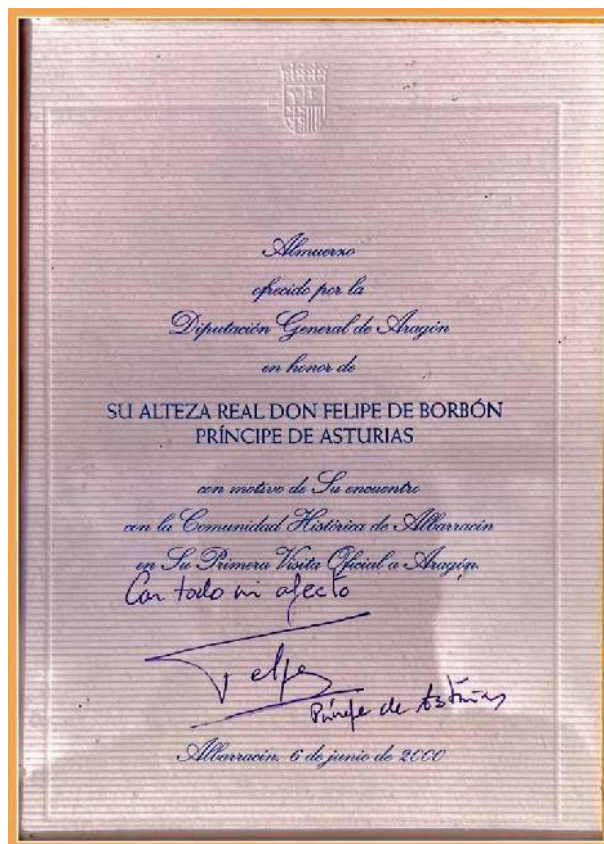 Almuerzo
ofrecido por la
Diputación General de Aragón
en honor de
SU ALTEZA REAL DON FELIPE DE BORBÓN
PRÍNCIPE DE ASTURIAS
con motivo de Su encuentro
con la Comunidad Histórica de Albarracín
en Su Primera Visita Oficial a Aragón.
Con todo mi afecto
Felipe
Príncipe de Asturias
Albarracín, 6 de junio de 2000